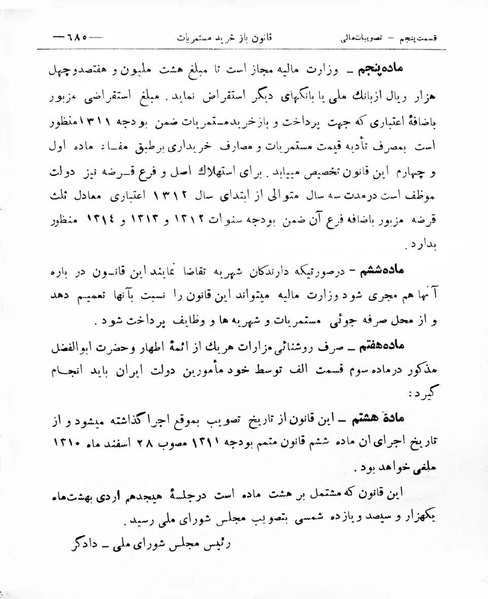 قسمت پنجم – تصویبات مالی    قانون باز خرید مستمریات    —٦٨٥—
ماده پنجم – وزارت مالیه مجاز است تا مبلغ هشت ملیون و هفتصد و چهل
هزار ریال از بانك ملی یا بانکهای دیگر استقراض نماید. مبلغ استقراضی مزبور
باضافهٔ اعتباری که جهت پرداخت و باز خرید مستمریات ضمن بودجه ١٣١١ منظور
است بمصرف تأدیه قیمت مستمریات و مصارف خریداری بر طبق مفاد ماده اول
و چهارم این قانون تخصیص مییابد. برای استهلاك اصل و فرع قرضه نیز دولت
موظف است در مدت سه سال متوالی از ابتدای سال ١٣١٢ اعتباری معادل ثلث
قرضه مزبور باضافه فرع آن ضمن بودجه سنوات ١٣١٢ و ١٣١٣ و ١٣١٤ منظور
بدارد.
ماده ششم – درصورتیکه دارندگان شهریه تقاضا نمایند این قانون در باره
آنها هم مجری شود وزارت مالیه میتواند این قانون را نسبت بآنها تعمیم دهد
و از محل صرفه جوئی مستمریات و شهریه ها و وظایف پرداخت شود.
ماده هفتم – صرف روشنائی مزارات هریك از ائمهٔ اطهار و حضرت ابوالفضل
مذکور در ماده سوم قسمت الف توسط خود مأمورین دولت ایران باید انجام
گیرد:
مادهٔ هشتم – این قانون از تاریخ تصویب بموقع اجرا گذاشته میشود و از
تاریخ اجرای آن ماده ششم قانون متمم بودجه ١٣١١ مصوب ٢٨ اسفند ماه ١٣١٠
ملغی خواهد بود.
این قانون که مشتمل بر هشت ماده است در جلسهٔ هیجدهم اردی بهشت ماه
یکهزار و سیصد و یازده شمسی بتصویب مجلس شورای ملی رسید.
رئیس مجلس شورای ملی – دادگر